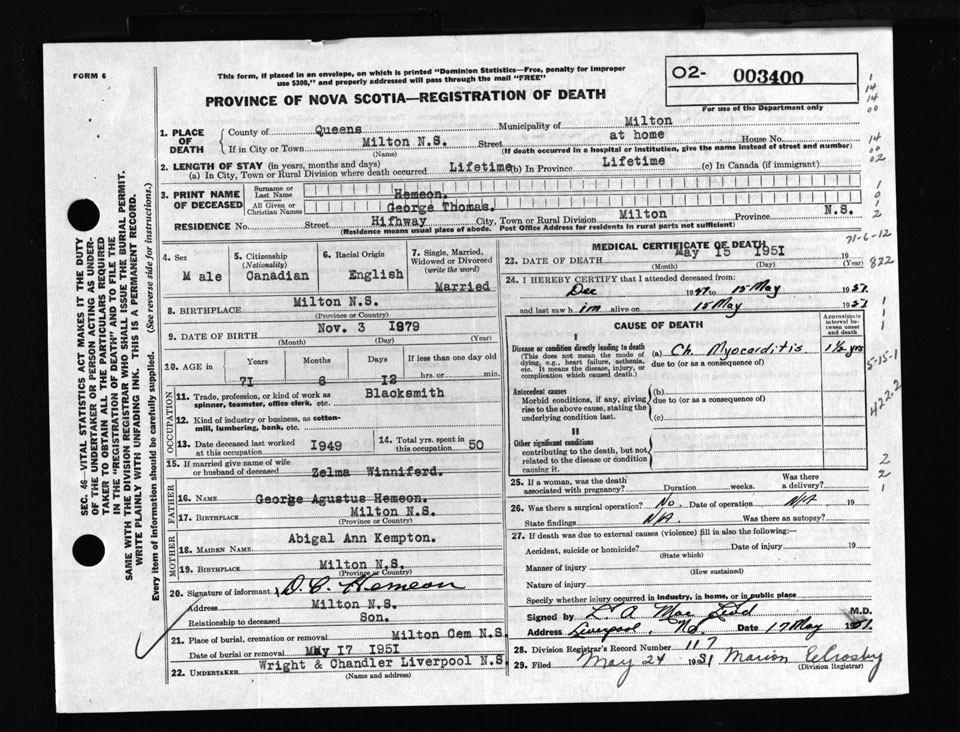 FORM 6
This form, if placed in an envelope, on which is printed "Dominion Statistics—Free, penalty for improper
use $300," and properly addressed will pass through the mail "FREE"
PROVINCE OF NOVA SCOTIA—REGISTRATION OF DEATH
O2- 003400
For use of the Department only
SEC. 46—VITAL STATISTICS ACT MAKES IT THE DUTY
OF THE UNDERTAKER OR PERSON ACTING AS UNDER-
TAKER TO OBTAIN ALL THE PARTICULARS REQUIRED
IN THE "REGISTRATION OF DEATH" AND TO FILE THE
SAME WITH THE DIVISION REGISTRAR WHO SHALL ISSUE THE BURIAL PERMIT.
WRITE PLAINLY WITH UNFADING INK. THIS IS A PERMANENT RECORD.
Every item of information should be carefully supplied. (See reverse side for instructions.)
1. PLACE OF DEATH
County of Queens Municipality of Milton
If in City or Town Milton N.S. Street at home House No.
(Name) (If death occurred in a hospital or institution, give the name instead of street and number)
2. LENGTH OF STAY (in years, months and days)
(a) In City, Town or Rural Division where death occurred Lifetime (b) In Province Lifetime (c) In Canada (if immigrant)
3. PRINT NAME OF DECEASED
Surname or Last Name Hemeon.
All Given or Christian Names George Thomas.
RESIDENCE No. Street Hifhway City, Town or Rural Division Milton Province N.S.
(Residence means usual place of abode. Post Office Address for residents in rural parts not sufficient)
4. Sex Male
5. Citizenship (Nationality) Canadian
6. Racial Origin English
7. Single, Married, Widowed or Divorced (write the word) Married
8. BIRTHPLACE Milton N.S.
(Province or Country)
9. DATE OF BIRTH Nov. 3 I879
(Month) (Day) (Year)
10. AGE in Years Months Days If less than one day old
7I 6 I2 hrs. or min.
OCCUPATION
11. Trade, profession, or kind of work as spinner, teamster, office clerk, etc. Blacksmith
12. Kind of industry or business, as cotton-mill, lumbering, bank, etc.
13. Date deceased last worked at this occupation I949
14. Total yrs. spent in this occupation 50
15. If married give name of wife or husband of deceased Zelma Winniferd.
FATHER
16. NAME George Agustus Hemeon.
17. BIRTHPLACE Milton N.S.
(Province or Country)
MOTHER
18. MAIDEN NAME Abigal Ann Kempton.
19. BIRTHPLACE Milton N.S.
(Province or Country)
20. Signature of informant D. C. Hemeon
Address Milton N.S.
Relationship to deceased Son.
21. Place of burial, cremation or removal Milton Cem N.S.
Date of burial or removal May I7 I95I
22. UNDERTAKER Wright & Chandler Liverpool N.S.
(Name and address)
MEDICAL CERTIFICATE OF DEATH
23. DATE OF DEATH May I5 I95I
(Month) (Day) (Year)
24. I HEREBY CERTIFY that I attended deceased from:
Dec 1949 to 15 May 1951
and last saw him alive on 15 May 1951
CAUSE OF DEATH
Approximate interval between onset and death
I
Disease or condition directly leading to death
(This does not mean the mode of dying, e.g., heart failure, asthenia, etc. It means the disease, injury, or complication which caused death.)
(a) Ch. Myocarditis 1½ yrs
due to (or as a consequence of)
Antecedent causes
Morbid conditions, if any, giving rise to the above cause, stating the underlying condition last.
(b)
due to (or as a consequence of)
(c)
II
Other significant conditions
contributing to the death, but not related to the disease or condition causing it.
25. If a woman, was the death associated with pregnancy? Duration weeks. Was there a delivery?
26. Was there a surgical operation? No. Date of operation N/A 19
State findings N/A. Was there an autopsy?
27. If death was due to external causes (violence) fill in also the following:—
Accident, suicide or homicide? Date of injury 19
(State which)
Manner of injury
(How sustained)
Nature of injury
Specify whether injury occurred in industry, in home, or in public place
Signed by L. A. Mac Leod M.D.
Address Liverpool, NS. Date 17 May 1951.
28. Division Registrar's Record Number 117
29. Filed May 24 1951 Marion E Crosby
(Division Registrar)
1
14
14
00
14
00
02
1
0
1
2
71-6-12
822
1
1
1
5-15-1
422.2
2
2
1